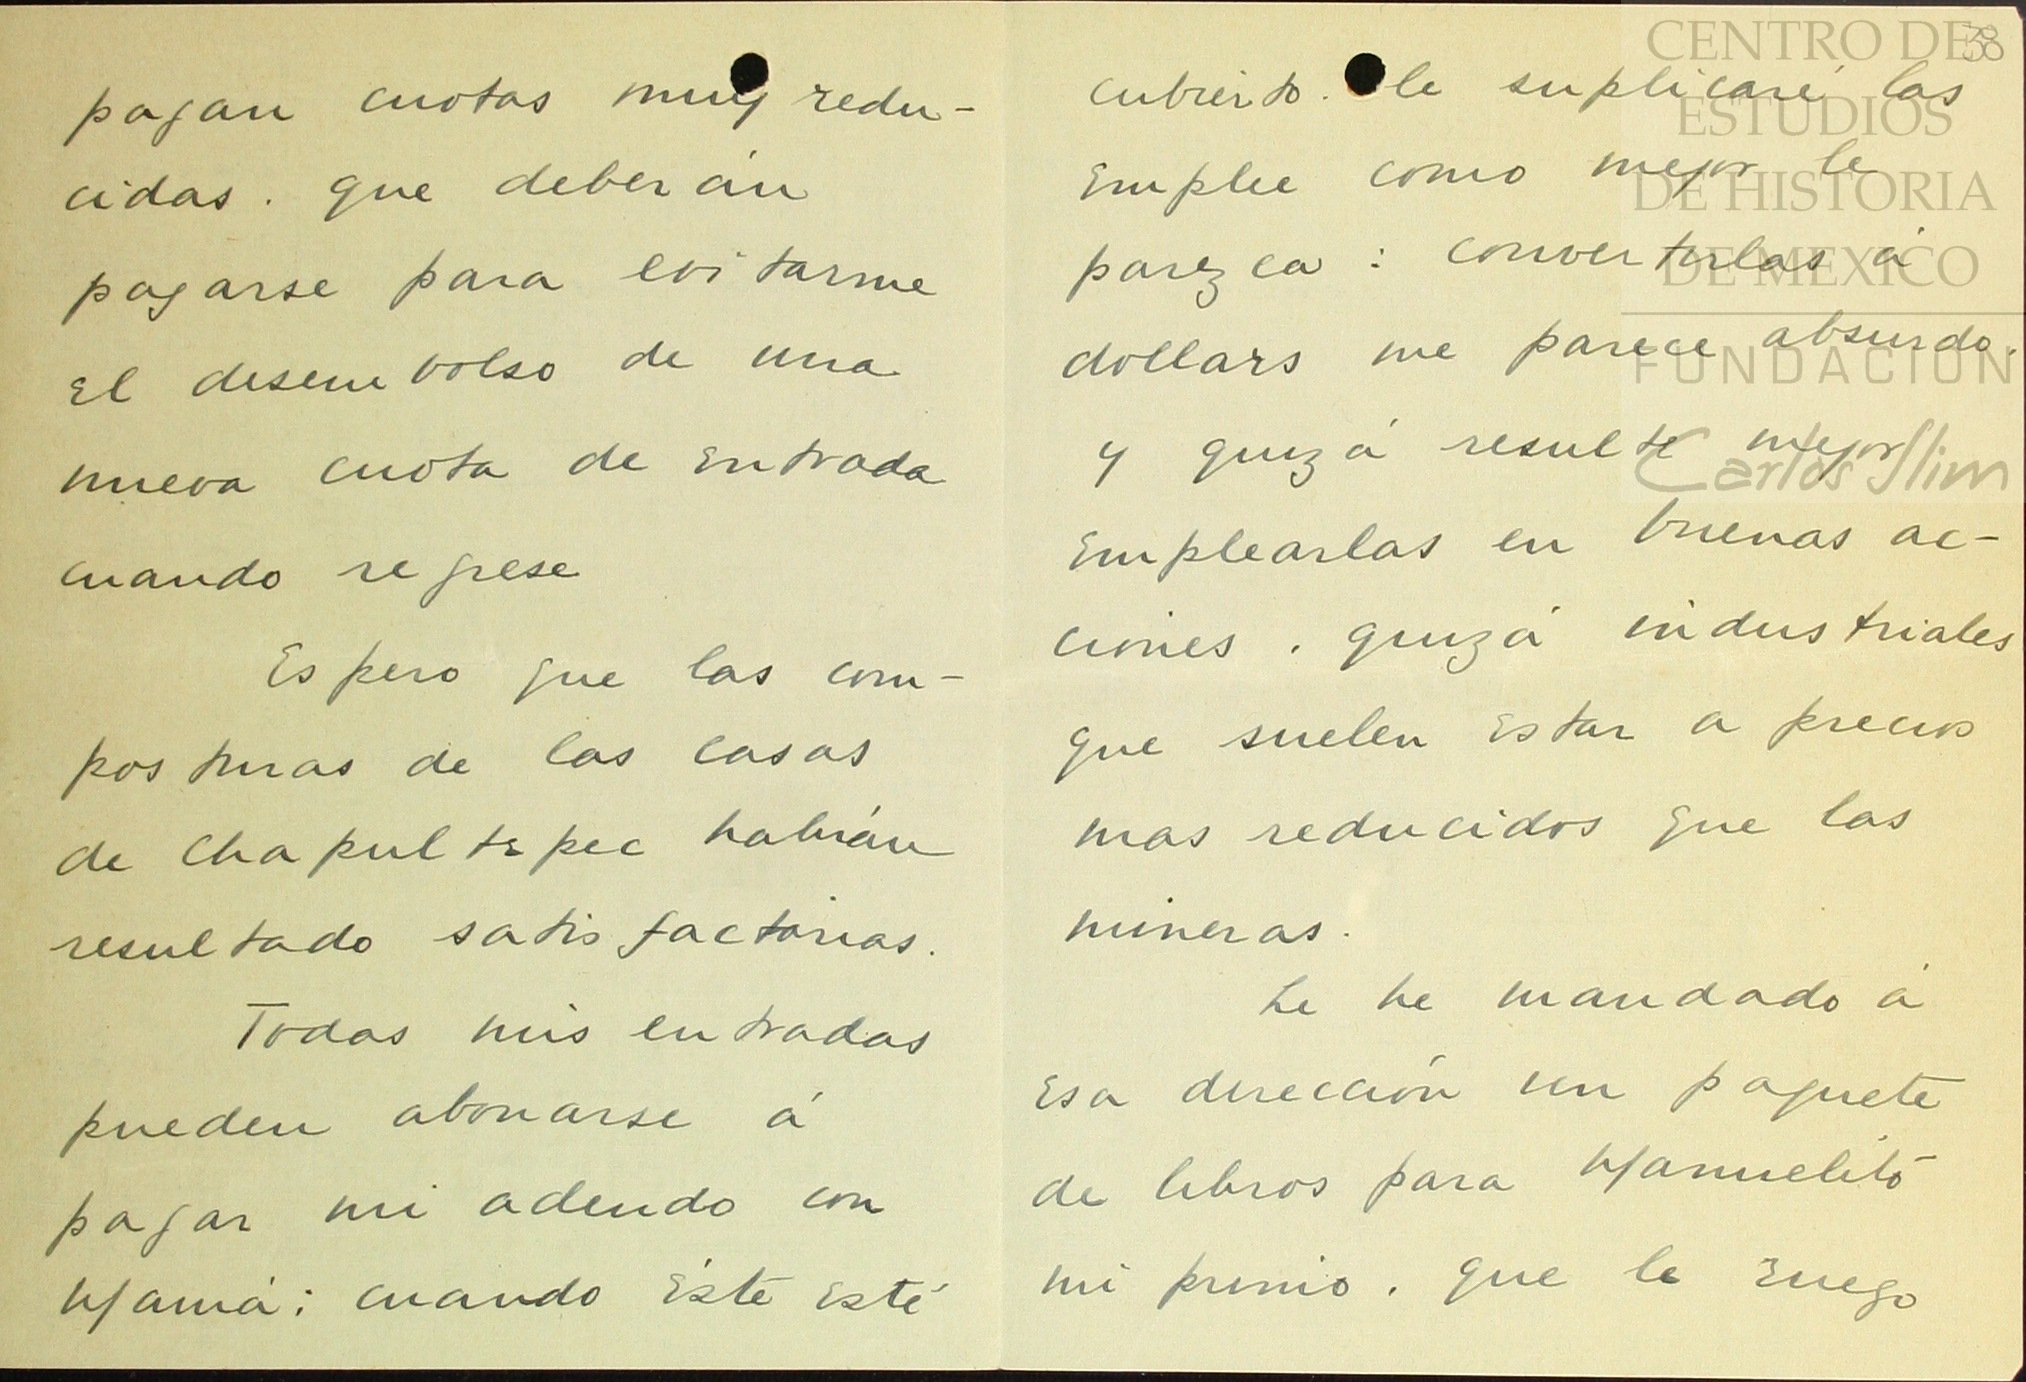 pagan cuotas muy redu-
cidas. que deberán
pagarse para evitarme
el desembolso de una
nueva cuota de entrada
cuando regrese
Espero que las com-
posturas de las casas
de Chapultepec habrán
resultado satisfactorias.
Todas mis entradas
pueden abonarse á
pagar mi adeudo con
Mamá; cuando éste esté
38
cubierto. le suplicaré las
emplee como mejor le
parezca: convertirlas á
dollars me parece absurdo.
y quizá resulte mejor
emplearlas en buenas ac-
ciones. quizá industriales
que suelen estar a precios
mas reducidos que las
mineras.
Le he mandado á
esa dirección un paquete
de libros para Manuelito
mi primo. que le ruego
CENTRO DE
ESTUDIOS
DE HISTORIA
DE MEXICO
FUNDACION
Carlos Slim